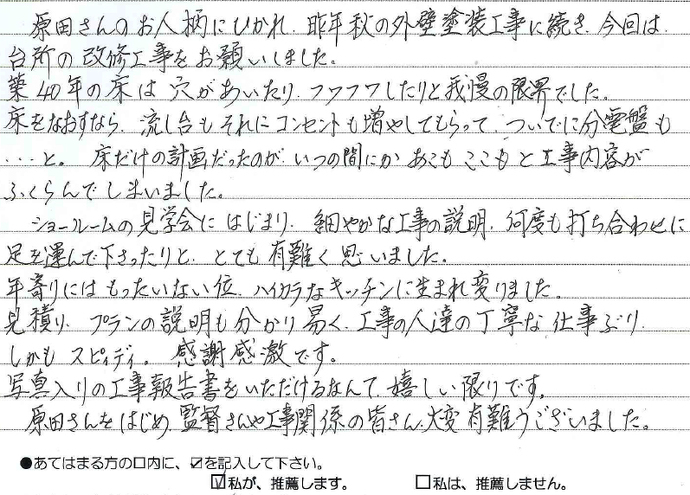 原田さんのお人柄にひかれ、昨年秋の外壁塗装工事に続き、今回は、
台所の改修工事をお願いしました。
築40年の床は穴があいたり、フワフワしたりと我慢の限界でした。
床をなおすなら、流し台も それにコンセントも増やしてもらって、ついでに分電盤も
・・・と。床だけの計画だったのが、いつの間にか あこも ここも と工事内容が
ふくらんでしまいました。
ショールームの見学会に はじまり、細やかな工事の説明、何度も打ち合わせに
足を運んで下さったりと、とても有難く思いました。
年寄りにはもったいない位、ハイカラなキッチンに生まれ変りました。
見積り、プランの説明も分かり易く、工事の人達の丁寧な仕事ぶり、
しかも スピィディ。感謝感激です。
写真入りの工事報告書をいただけるなんて、嬉しい限りです。
原田さんをはじめ、監督さんや工事関係の皆さん、大変有難うございました。
●あてはまる方の口内に、☑を記入して下さい。
☑私が、推薦します。 □私は、推薦しません。